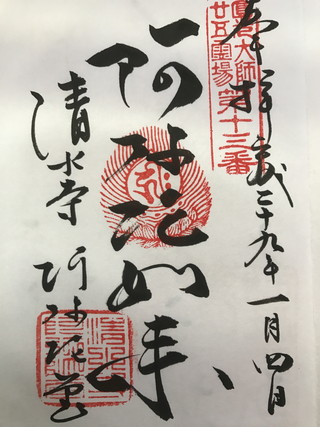 奉拝 平成二十九年一月四日
圓光大師
廿五霊場第十三番
阿弥陀如来
清水寺 阿弥陀堂